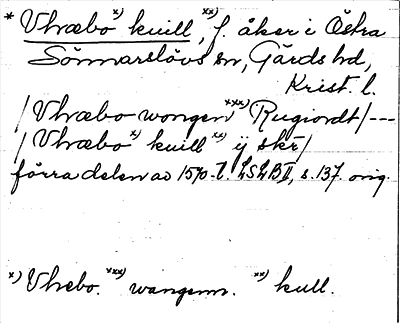 * Vhræbo x) kuill xx), f. åker i Östra
Sönnarslövs sn, Gärds hd,
Krist. l.
/Vhræbo wongen xxx) Rugiordt/---
/Vhræbo x) kuill xx) ÿ skr/
förra delen av 1570-t. LSLB II, s. 137. orig.
x) Vhrebo. xxx) wangenn. xx) kull.